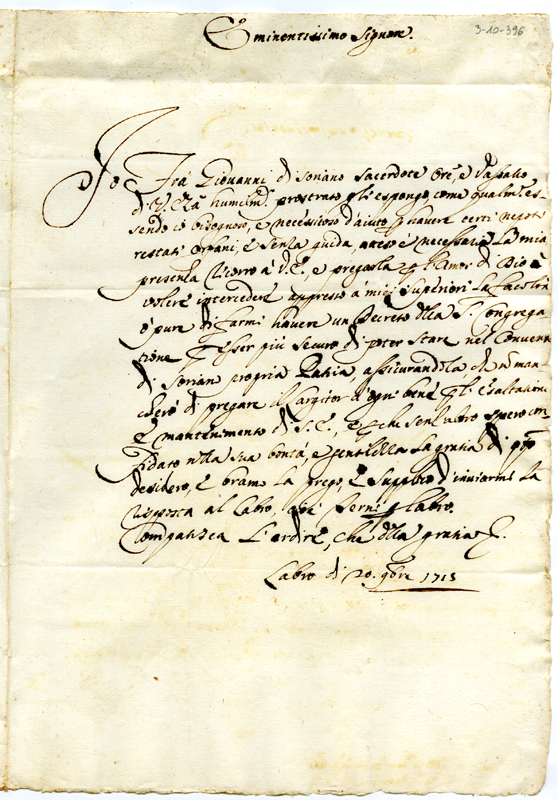 Eminentissimo Signore.
3-10-396
Io Frà Giovanni di Soriano Sacerdote Ore, e Vassallo
di V. Za humilmte prostrato gli espongo, come qualmte es-
sendo io bisognoso, e necessitoso d'aiuto p havere certi nepoti
restati orfani, e senza guida, atteso è necessaria la mia
presenza ricorro à V.E., e pregarla p l'Amor di Dio à
volere intercedere appresso à miei superiori la facoltà
ò pure di farmi havere un Decreto della S. Congrega
tione p esser più securo di poter stare nel Convento
di Sorian propria Patria, assicurandola che non man
cherò di pregare il largitor d'ogni bene p gli esaltatione
e mantenimento di V.E., e che senz'altro spero con
fidato nella sua bontà, e gentilezza la gratia di qto
desidero, e bramo la prego, e supplico d'inviarmi la
risposta al Labro, Terni p Labro.
Compatisca l'ardire, che della gratia
Labro di 20. 9bre 1713